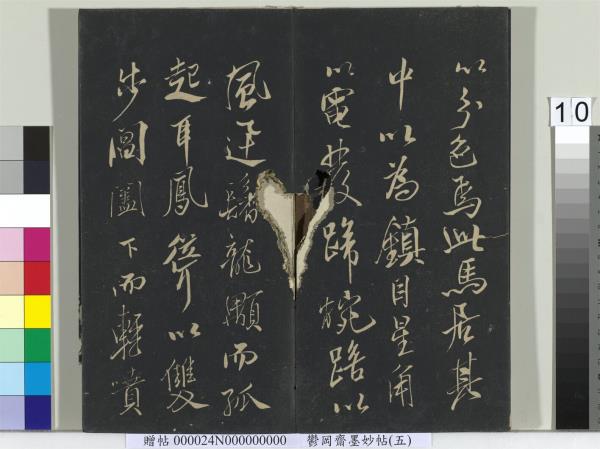 以分色焉此馬居其
中以為鎮目星角
以電發蹄椀踣以
風迸鬐龍顒而孤
起耳鳳聳以雙
步閶闔下而輕噴
10
贈帖 000024N000000000 鬱岡齋墨妙帖(五)